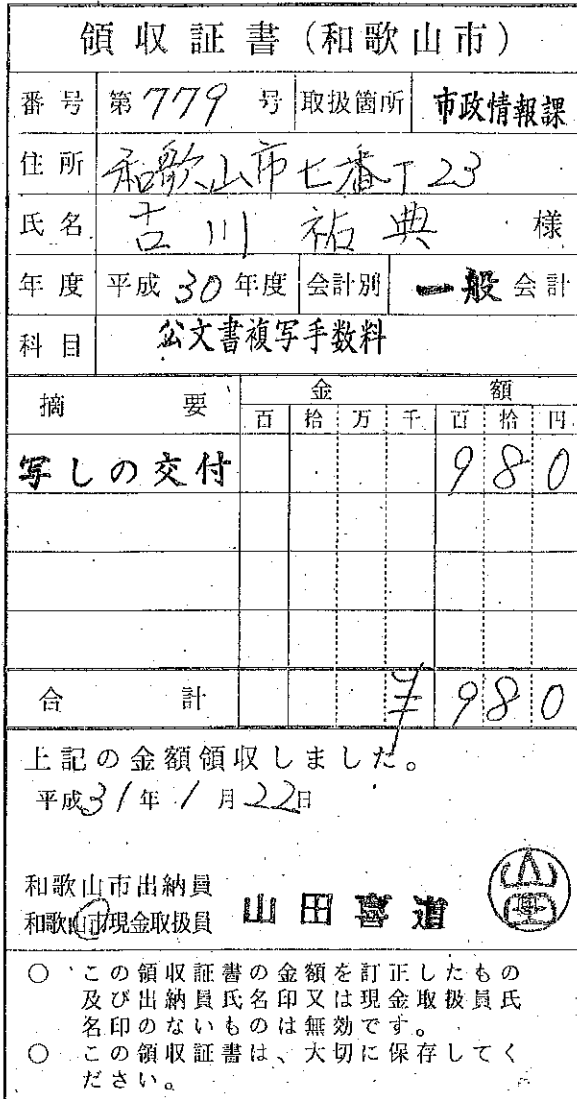 領収証書(和歌山市)
番号 第779号 取扱箇所 市政情報課
住所 和歌山市七番丁23
氏名 吉川祐典 様
年度 平成30年度 会計別 一般会計
科目 公文書複写手数料
摘要 金額
百 拾 万 千 百 拾 円
写しの交付 980
合計 ¥980
上記の金額領収しました。
平成31年1月22日
和歌山市出納員
和歌山市現金取扱員 山田喜道
○ この領収証書の金額を訂正したもの
及び出納員氏名印又は現金取扱員氏
名印のないものは無効です。
○ この領収証書は、大切に保存してく
ださい。